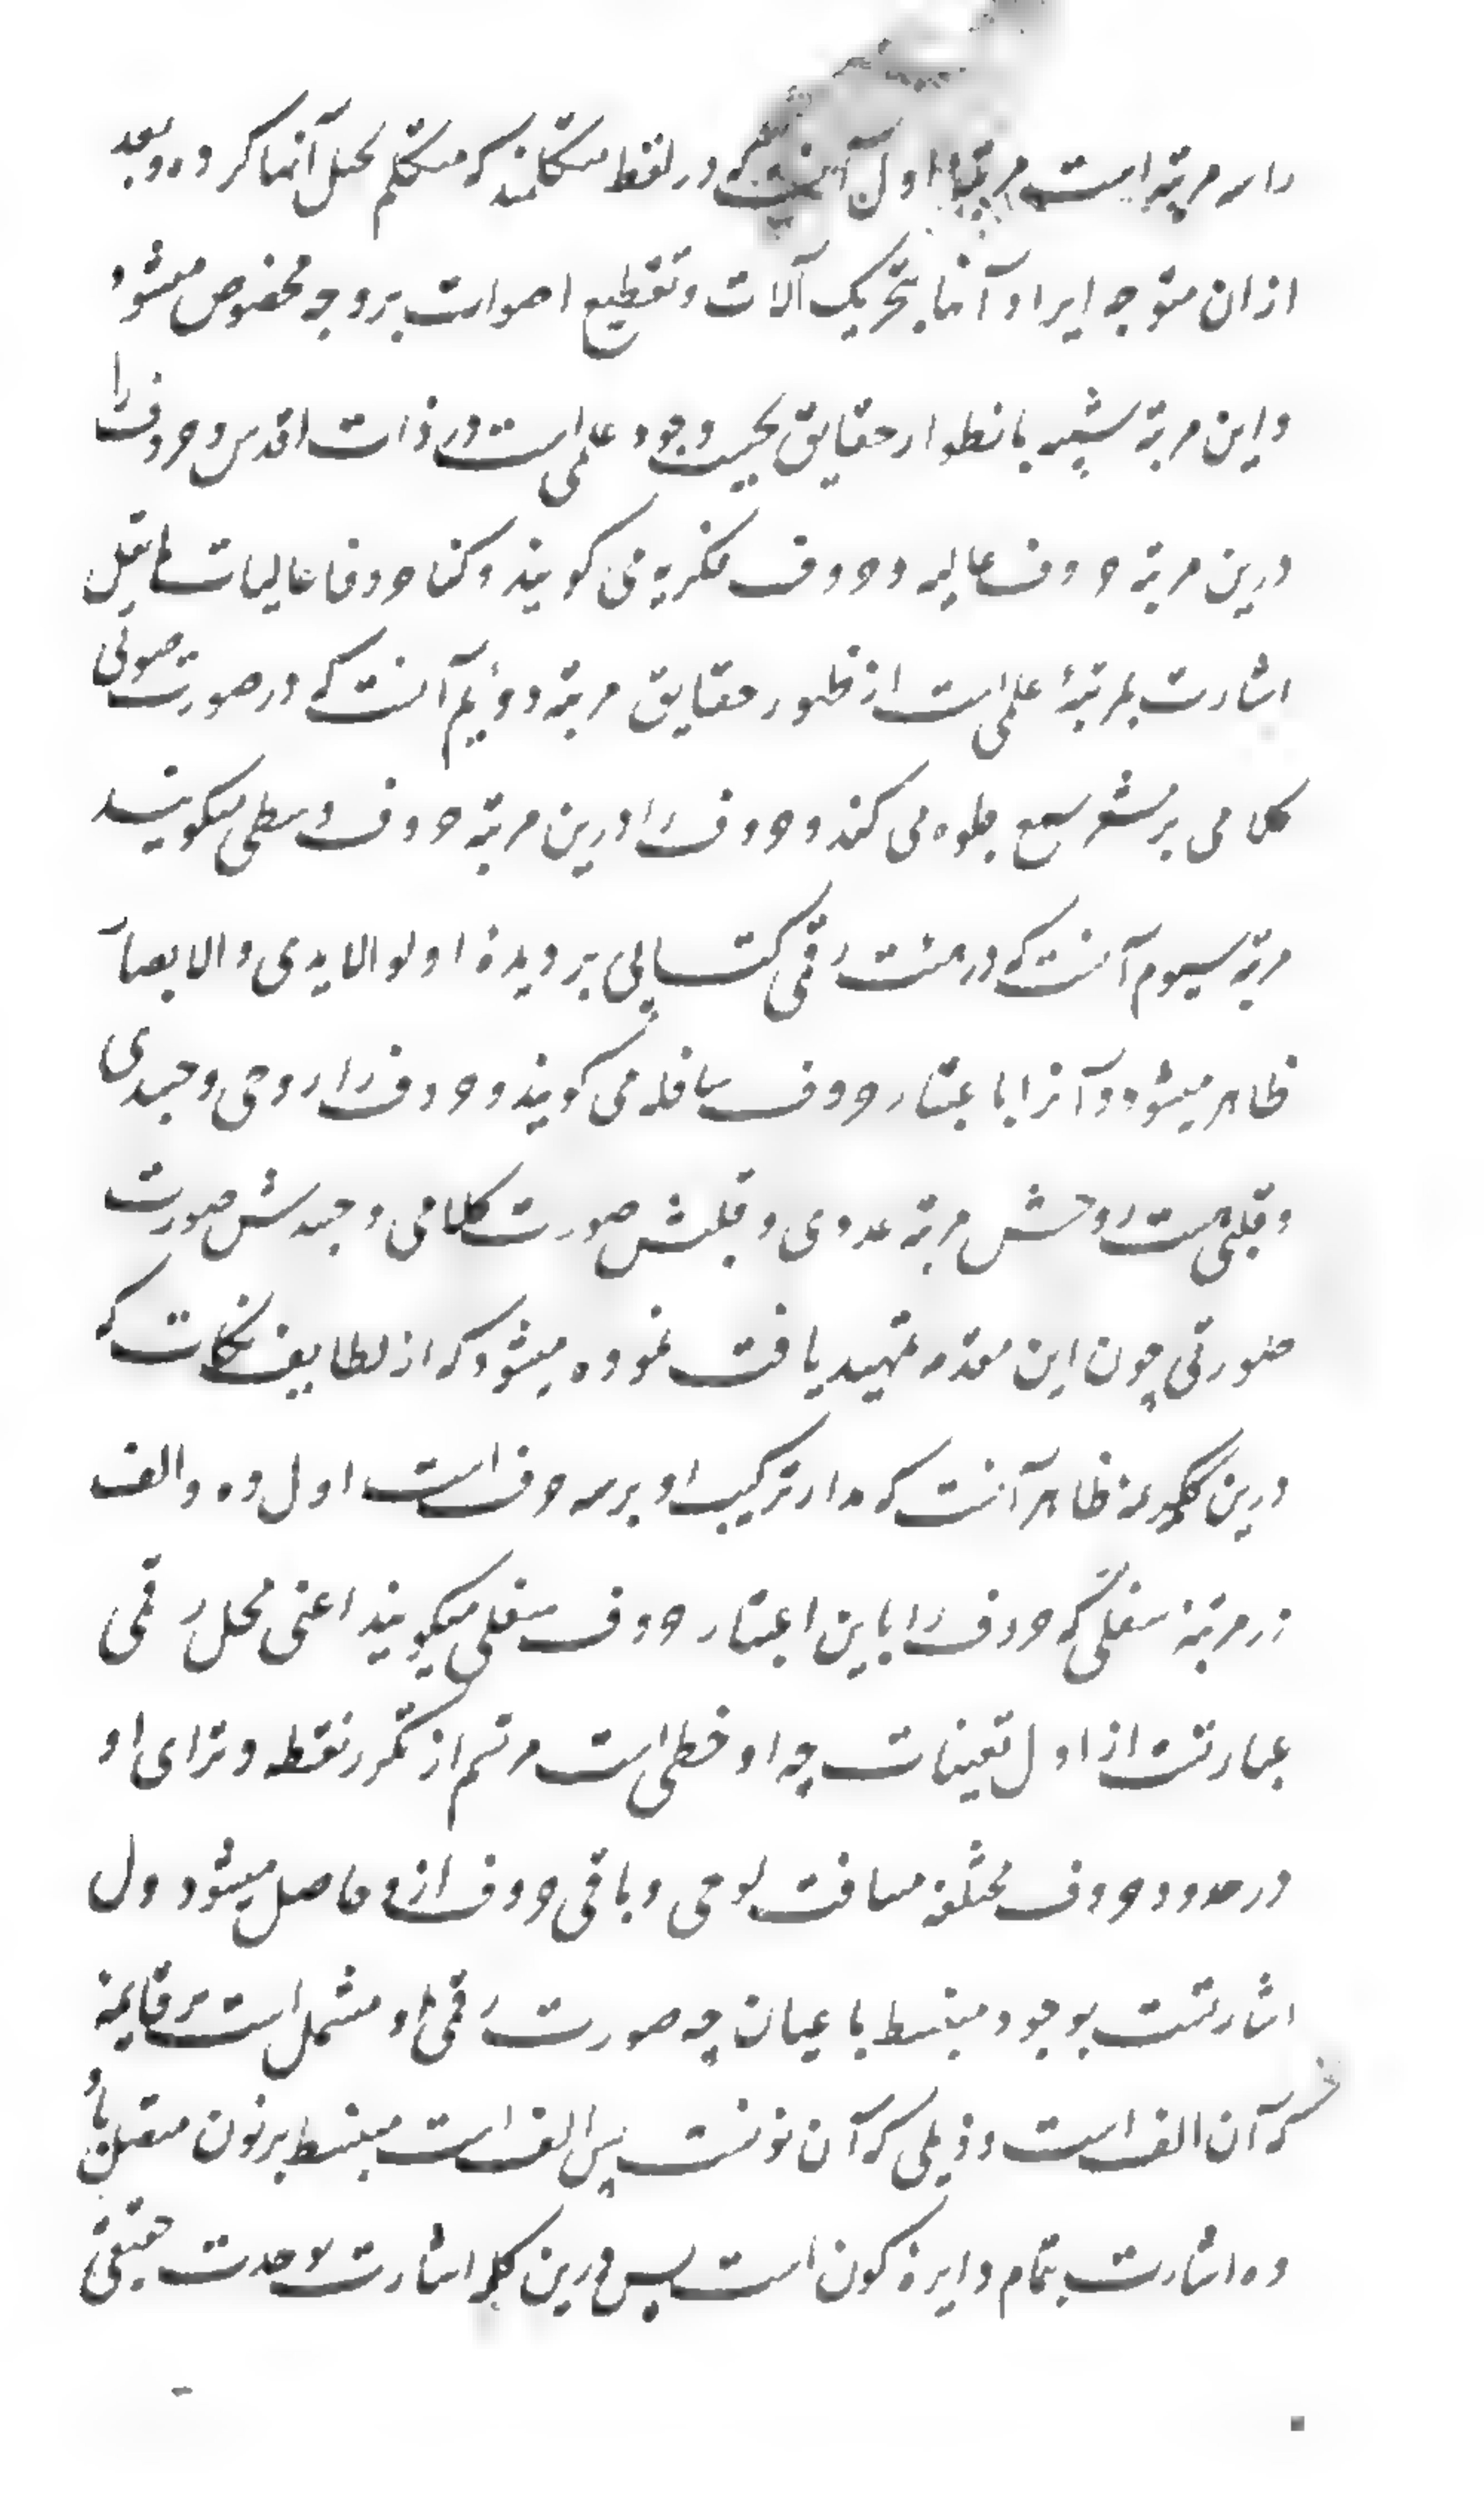 را سه مرتبه است مرتبهٔ اول آنست که در لفظ متکلمند که متکلم تحیل آنها کرده و بعد
ازان متوجه ایراد آنها بتحریک آلات و تقطیع اصوات بر وجه مخصوص میشود
و این مرتبه شبیه بانطوار حقایق بحسب وجود علمی است در ذات اقدس و حروف را
درین مرتبه حروف عالیه و حروف فکریه می کویند و کنا حروفا عالیات لم نقل
اشارت بمرتبهٔ علمی است از ظهور حقایق مرتبه دویم آنست که در صورت صوتی
کلامی بر مشعر سمع جلوه می کند و حروف را درین مرتبه حروف وسطی میکویند
مرتبه سیوم آنست که در منشٔت رقمی کتابی بر دیدهٔ اولو الایدی والابصار
ظاهر میشود و آنرا باعتبار حروف سافله می کویند و حروف را روحی و جسدی
و قلبی است روحش مرتبه عددی و قلبش صورت کلامی و جسدش صورت
صورتی چون این مقدمه تمهید یافت نموده میشود که از لطایف نکات که
درین کلمه ظاهر آنست که مدار ترکیب او بر سه حرف است اول ده والف
در مرتبهٔ سفلی که حروف را باین اعتبار حروف سفلی میکویند اعنی محل رقمی
عبارتست از اول تعینات چه او خطی است مرتسم از تکرر نقطه و ترای او
در حدود حروف مختلفه مسافت لوحی و باقی حروف ازو حاصل میشود ول
اشارتست بوجود منبسط باعیان چه صورت رقمی او مشتمل است بر قایمه
که آن الف است و ذیلی که آن نونست پس الف است منبسط بر نون متصل با و
ده اشارت بتمام دایرهٔ کون است پس درین کلمه اشارت بوحدت حقیقی